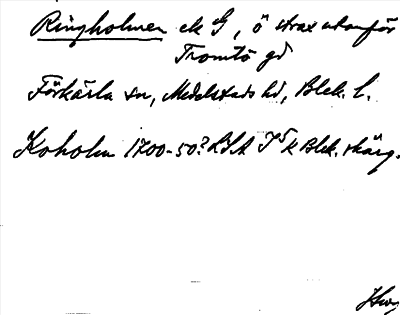 Ringholmen ek G, ö strax utanför
Tromtö gd
Förkärla sn, Medelstads hd, Blek. l.
Koholm 1700-50? LSA I5k Blek. skärg.